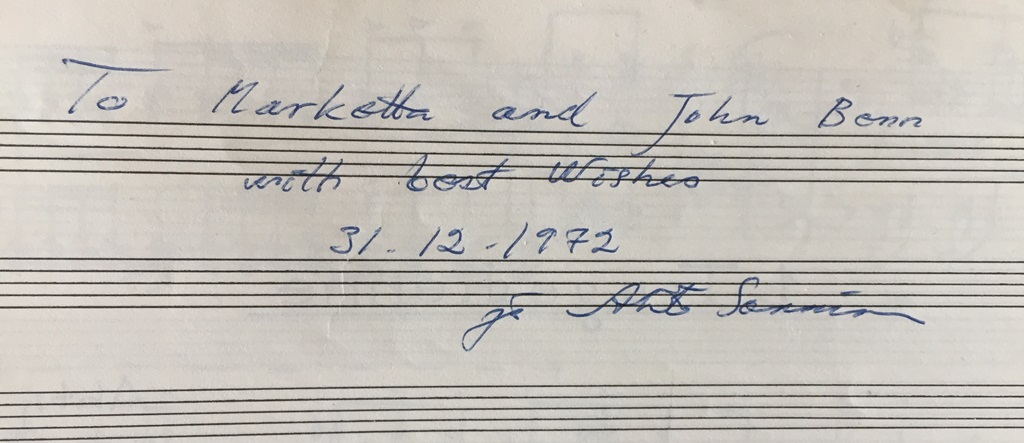 To Marketta and John Benn
with best Wishes
31.12.1972
Ahti Sonninen